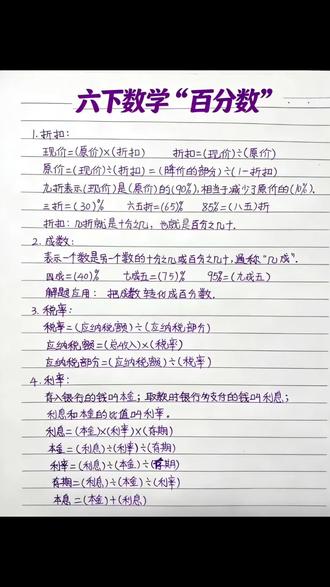 六下数学“百分数”
1.折扣:
现价=(原价)×(折扣) 折扣=(现价)÷(原价)
原价=(现价)÷(折扣)=(降价的部分)÷(1-折扣)
九折表示(现价)是(原价)的(90%),相当于减少了原价的(10%).
三折=(30)% 六五折=(65)% 85%=(八五)折
折扣:几折就是十分之几,也就是百分之几十.
2.成数:
表示一个数是另一个数的十分之几或百分之几十,通称“几成”.
四成=(40)% 七成五=(75)% 95%=(九成五)
解题应用: 把成数转化成百分数.
3.税率:
税率=(应纳税额)÷(应纳税部分)
应纳税额=(总收入)×(税率)
应纳税部分=(应纳税额)÷(税率)
4.利率:
存入银行的钱叫本金;取款时银行多支付的钱叫利息;
利息和本金的比值叫利率。
利息=(本金)×(利率)×(存期)
本金=(利息)÷(利率)÷(存期)
利率=(利息)÷(本金)÷(存期)
存期=(利息)÷(本金)÷(利率)
本息=(本金)+(利息)